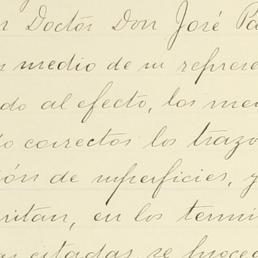 n Doctor Don José Pa
s medio de su represe
do al efecto, los me
o correctos los trazo
ión de superficies, y
ritan, en los termi
as citadas se proced